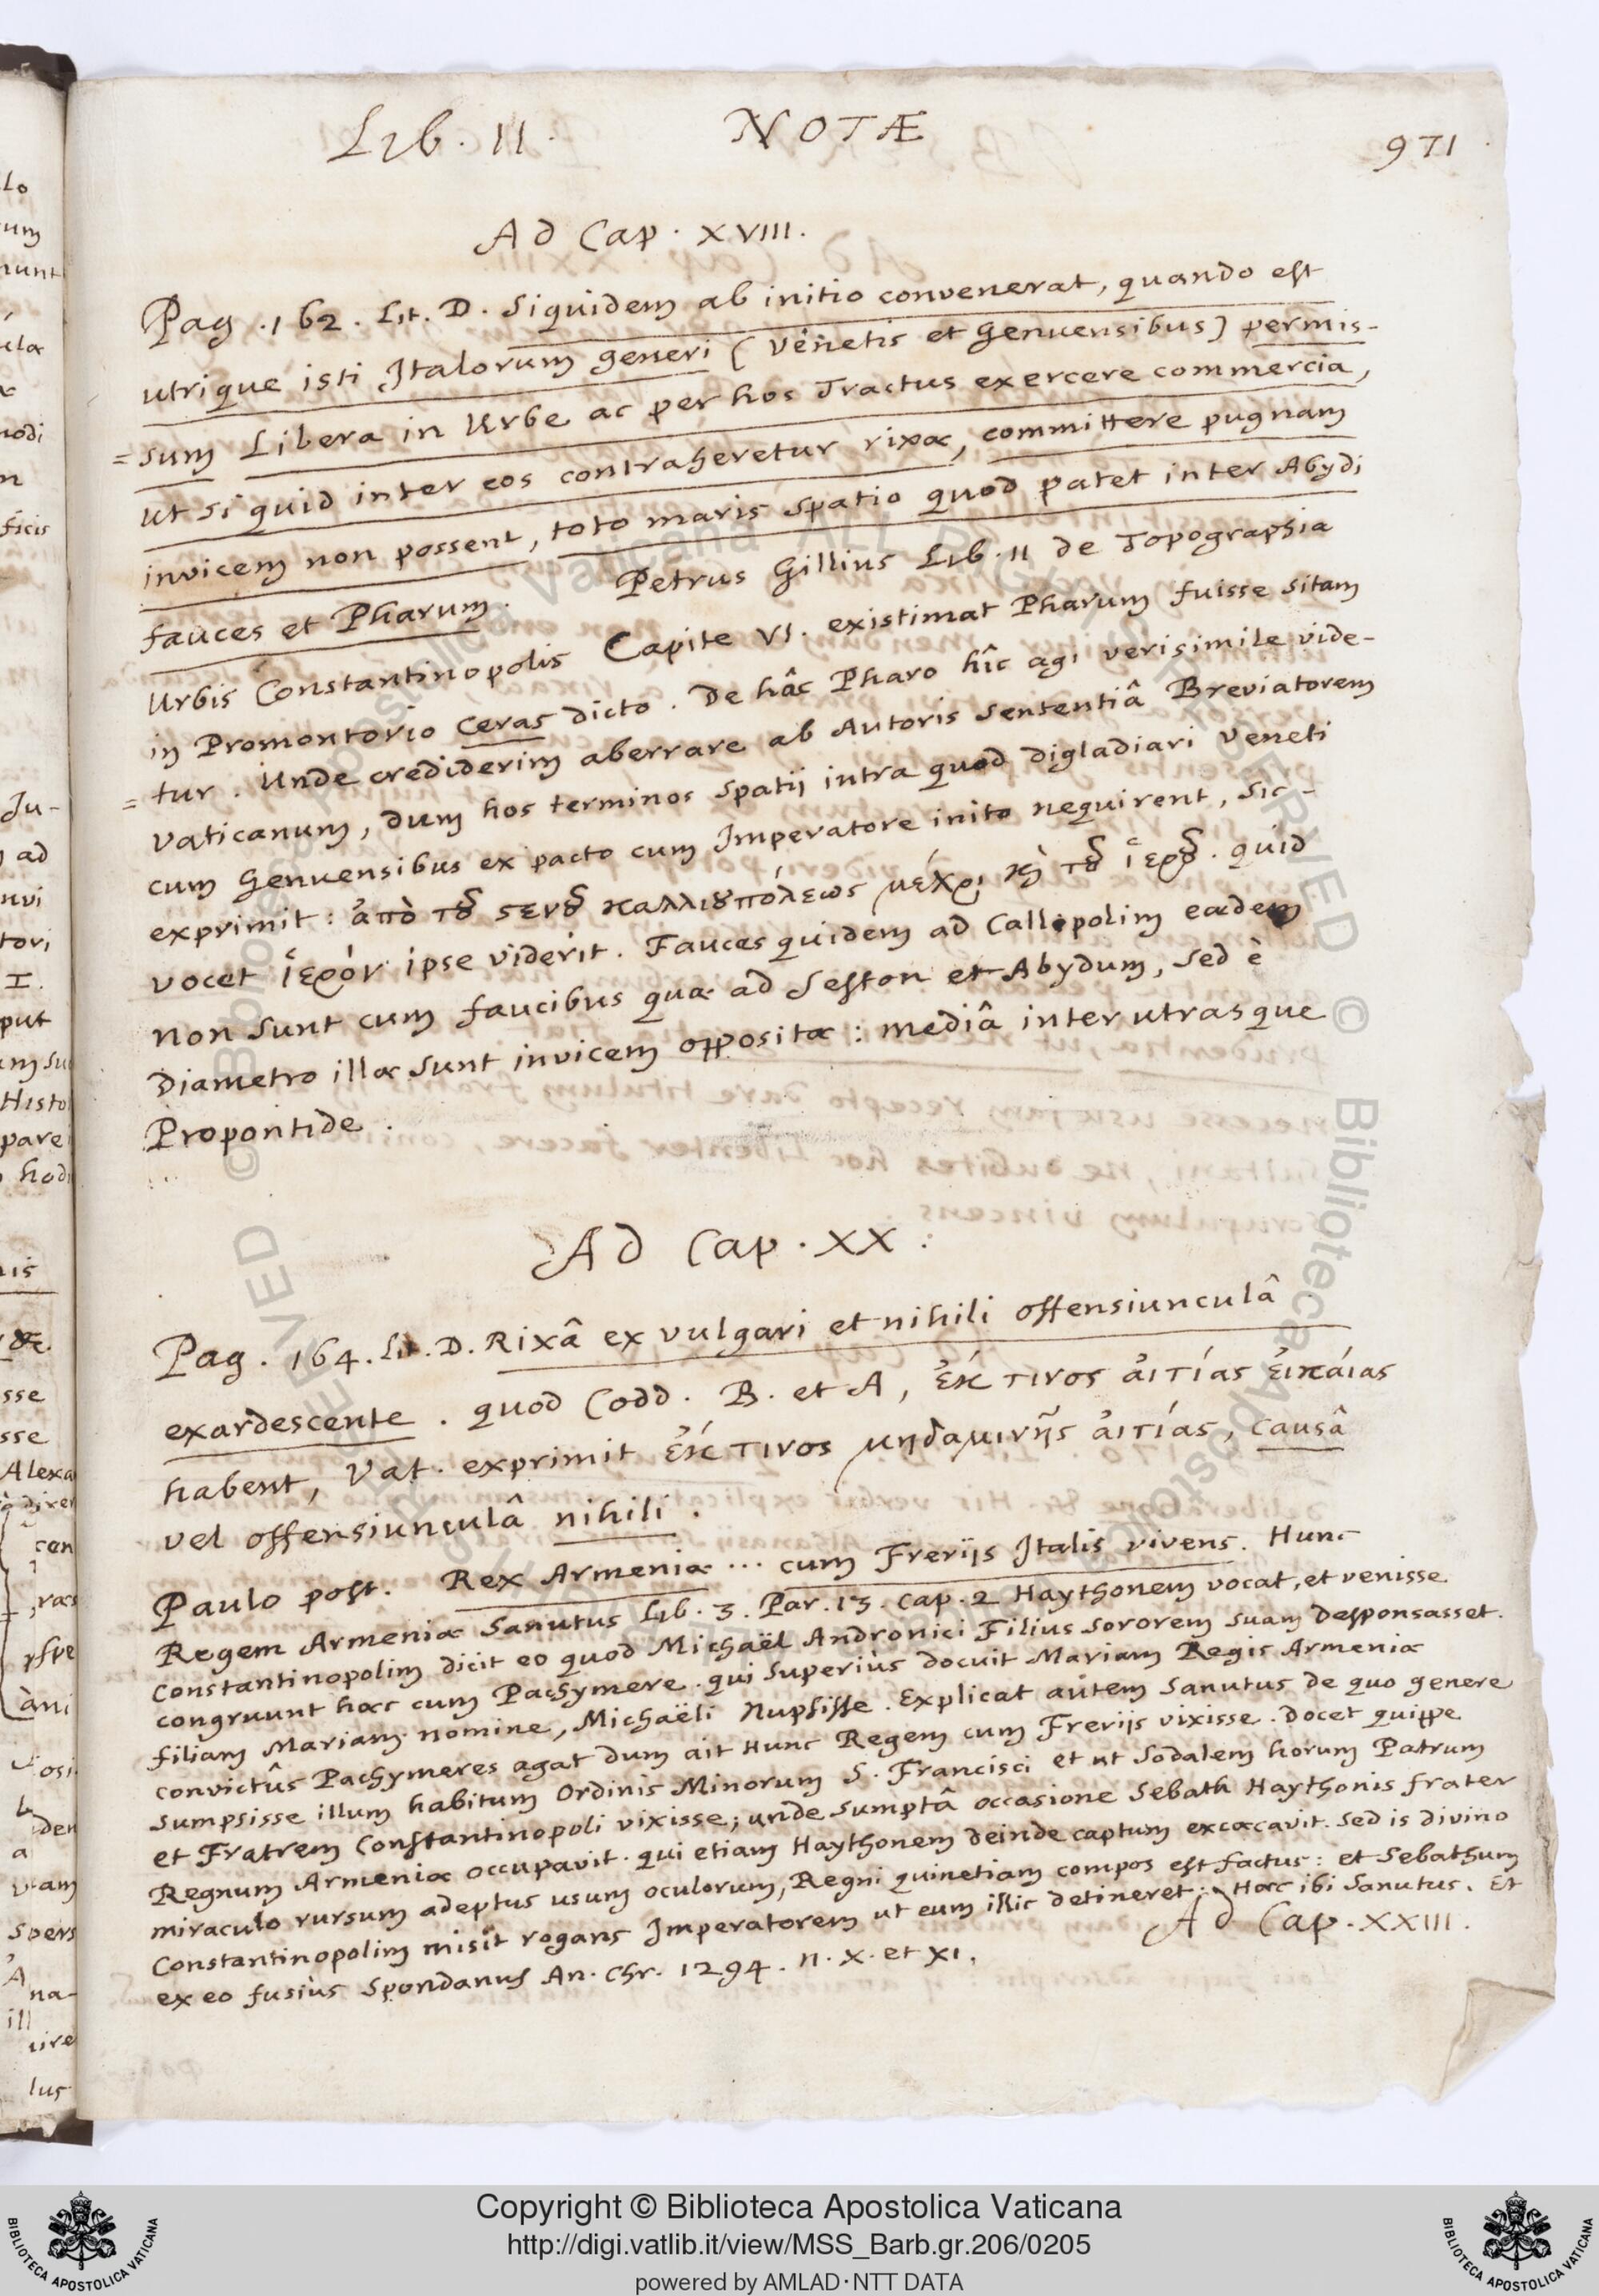 Lib. II. NOTÆ 971
Ad Cap. XVIII.
Pag. 162. Lit. D. Siquidem ab initio convenerat, quando est
utrique isti Italorum generi (Venetis et Genuensibus) permis-
=sum Libera in Urbe ac per hos Tractus exercere commercia,
ut si quid inter eos contraheretur rixæ, committere pugnam
invicem non possent, toto maris spatio quod patet inter Abydi
fauces et Pharum. Petrus Gillius Lib. II de Topographia
Urbis Constantinopolis Capite VI. existimat Pharum fuisse sitam
in Promontorio Ceras dicto. De hâc Pharo hîc agi verisimile vide-
=tur. Unde crediderim aberrare ab Autoris sententiâ Breviatorem
Vaticanum, dum hos terminos spatij intra quod digladiari Veneti
cum Genuensibus ex pacto cum Imperatore inito nequirent, sic -
exprimit: ἀπὸ τȣ͂ ϛενȣ͂ καλλιȣπόλεως μέχρι ϗ̀ τȣ͂ ἱερȣ͂. quid
vocet ἱερόν ipse viderit. Fauces quidem ad Callipolim eædem
non sunt cum faucibus quæ ad Seston et Abydum, sed è
Diametro illæ sunt invicem oppositæ: mediâ inter utrasque
Propontide.
Ad Cap. XX.
Pag. 164. Lit. D. Rixâ ex vulgari et nihili offensiunculâ
exardescente. quod Codd. B. et A, ἐκ τινος ἀιτίας ἐικάιας
habent, Vat. exprimit ἐκ τινος μηδαμινῆς ἀιτίας, causâ
vel offensiunculâ nihili.
Paulo post. Rex Armeniæ ... cum Frerijs Italis vivens. Hunc
Regem Armeniæ Sanutus Lib. 3. Par. 13. cap. 2 Haythonem vocat, et venisse
Constantinopolim dicit eo quod Michaël Andronici Filius sororem suam desponsasset.
congruunt hæc cum Pachymere. qui superiùs docuit Mariam Regis Armeniæ
filiam Mariam nomine, Michaëli nupsisse. Explicat autem Sanutus de quo genere
convictûs Pachymeres agat dum ait Hunc Regem cum Frerijs vixisse. Docet quippe
sumpsisse illum habitum Ordinis Minorum S. Francisci et ut sodalem horum Patrum
et Fratrem Constantinopoli vixisse; unde sumptâ occasione Sebath Haythonis frater
Regnum Armeniæ occupavit. qui etiam Haythonem deinde captum excæcavit. Sed is divino
miraculo rursum adeptus usum oculorum, Regni quinetiam compos est factus: et Sebathum
Constantinopolim misit rogans Imperatorem ut eum illic detineret: Hæc ibi Sanutus. Et
ex eo fusiùs Spondanus An. Chr. 1294. n. X. et XI.
Ad Cap. XXIII.
Copyright © Biblioteca Apostolica Vaticana
http://digi.vatlib.it/view/MSS_Barb.gr.206/0205
powered by AMLAD·NTT DATA
BIBLIOTECA APOSTOLICA VATICANA
BIBLIOTECA APOSTOLICA VATICANA